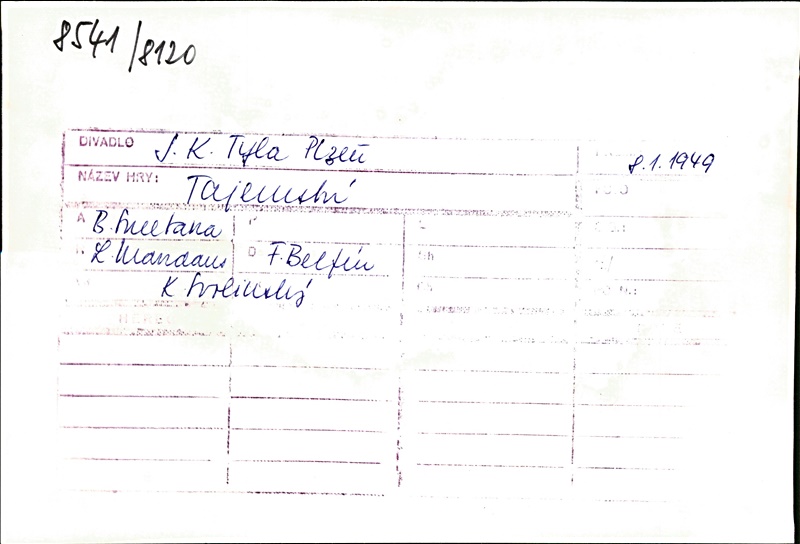 8541/8120
DIVADLO J. K. Tyla Plzeň 8.1.1949
NÁZEV HRY: Tajemství
A B. Smetana
L. Mandaus D F. Belfín
K. Svolinský